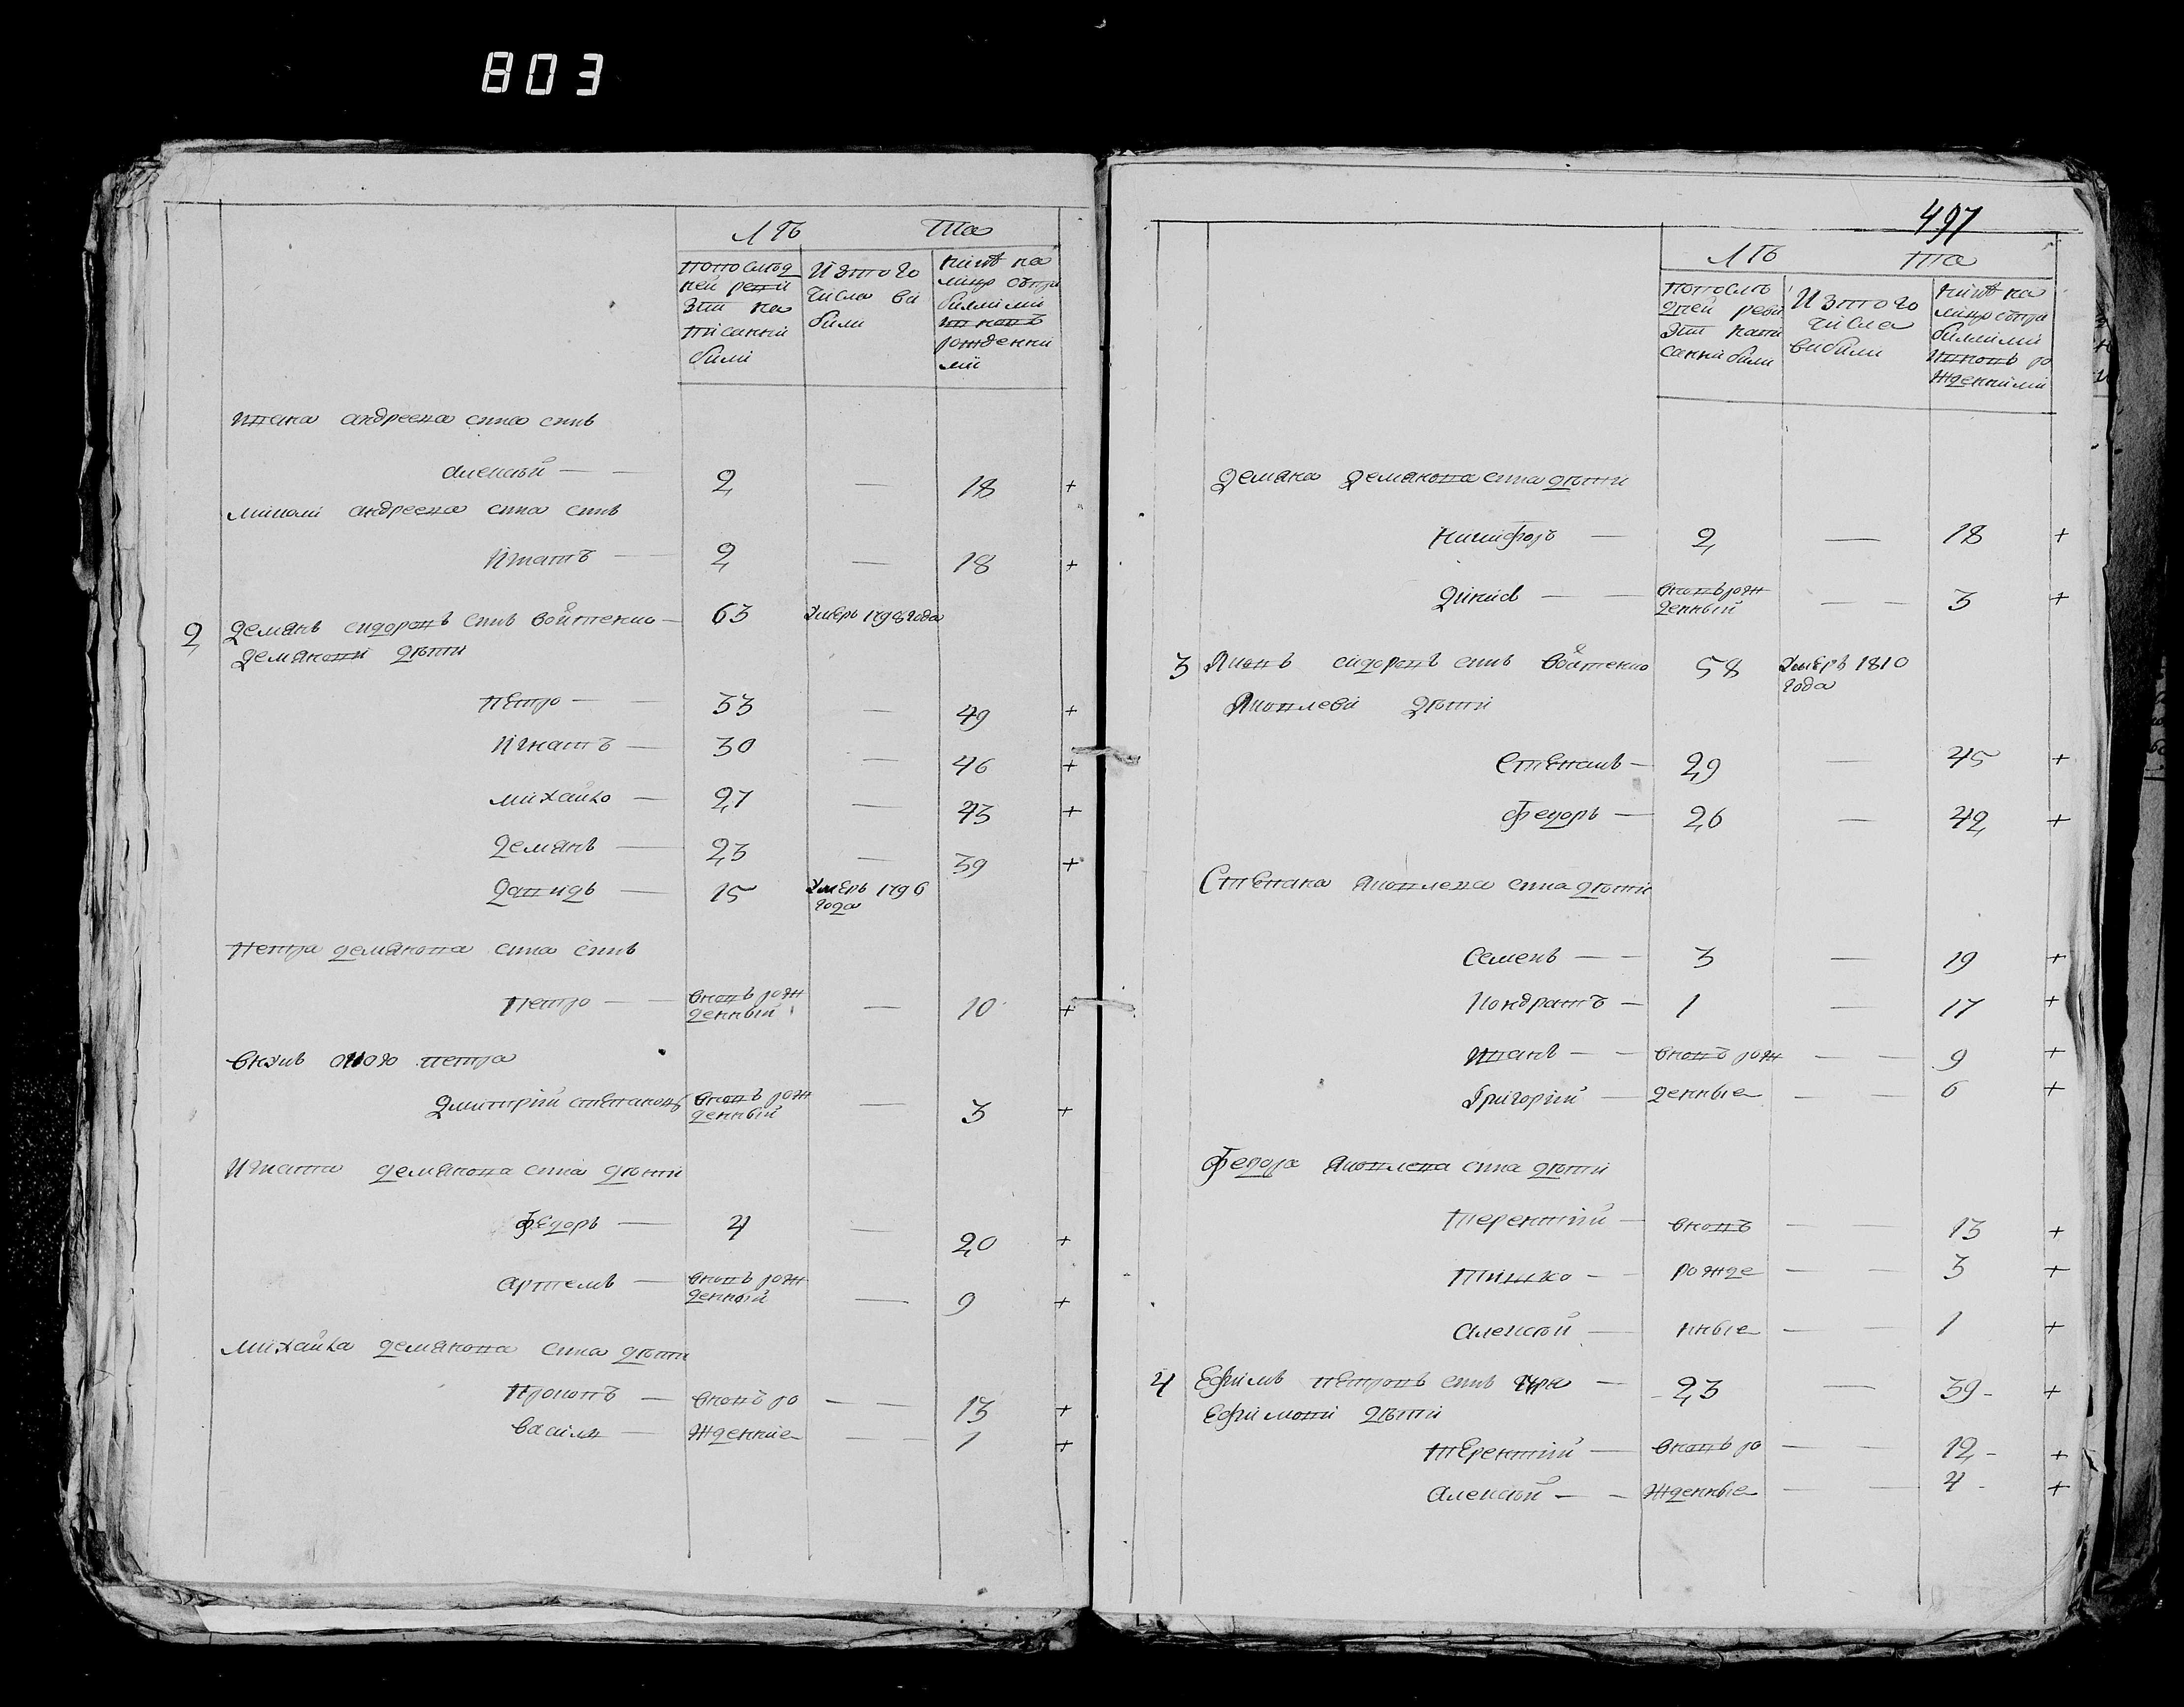 803
лѣ та
попослѣд
ней реви
зіи на
писаніи
били
Изтого
числа ви
били
ниѣ на
лицо съпри
билими
и вновъ
рожденни
мі
Ивана андреева сина синъ
алексѣй — — 2 — 18 +
николи андреева сина синъ
Игнатъ — 2 — 18 +
2 Демянъ сидоровъ синъ войтенко — 63 умеръ 1798 года
Демянови дѣти
петро — 33 — 49 +
Игнатъ — 30 — 46 +
михайло — 27 — 43 +
Демянъ — 23 — 39 +
Давидъ — 15 умеръ 1796
года
петра демянова сина синъ
петро — вновъ рож
денный — 10 +
внукъ оного петра
Дмитрій степановъ вновъ рож
денный — 3 +
Игната демянова сина дѣти
федоръ — 4 — 20 +
артемъ — вновъ рож
денный — 9 +
михайла демянова сина дѣти
прокопъ — вновъ ро — — 13 +
василь — жденніе — — 1 +
497
лѣ та
попослѣ
дней реви
зіи напи
санни били
Изтого
числа
вибили
ниѣ на
лицо съпри
билими
ивновъ ро
жденними
Демяна Демянова сина дѣти
Никифоръ — 2 — 18 +
Дінисъ — — вновърож
денный — — 3 +
3 Яковъ сидоровъ синъ войтенко 58 умеръ 1810
года
Яковлеви дѣти
Степанъ — 29 — 45 +
федоръ — 26 — 42 +
Степана яковлева сина дѣти
Семенъ — — 3 — 19 +
Кондратъ — 1 — 17 +
Иванъ — — вновъ рож — — 9 +
Григорій — денные — — 6 +
федора яковлева сина дѣти
терентій — вновъ — — 13 +
тишко — рожде — — 3 +
алексѣй — нные — — 1 +
4 Ефимъ петровъ синъ — 23 — 39 - +
Ефимови дѣти
терентій — вновъ ро — — 12 - +
алексѣй — — жденные — — 4 - +